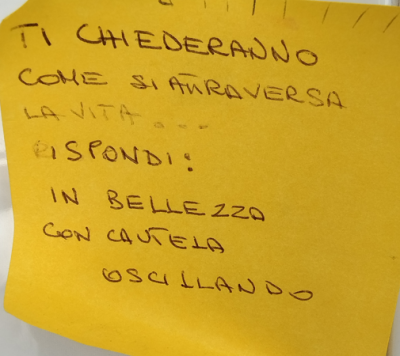 TI CHIEDERANNO
COME SI ATTRAVERSA
LA VITA....
RISPONDI:
IN BELLEZZA
CON CAUTELA
OSCILLANDO